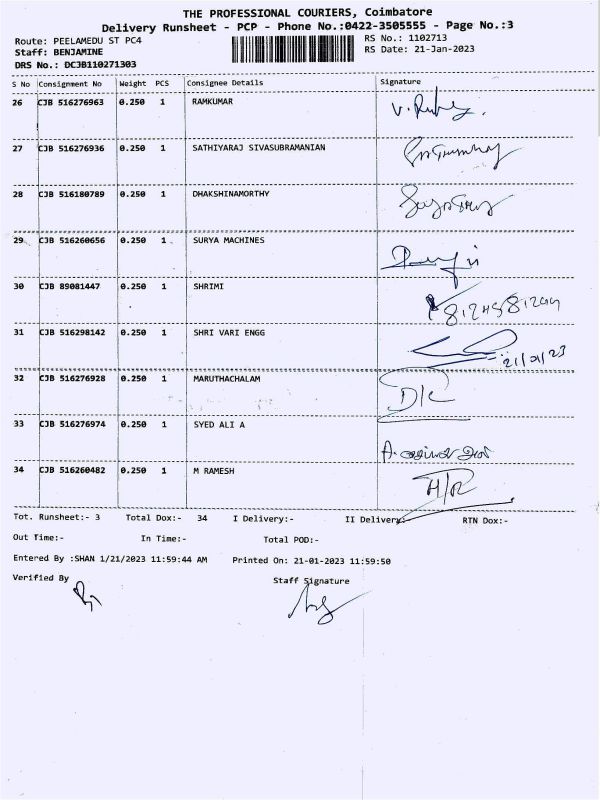 THE PROFESSIONAL COURIERS, Coimbatore
Delivery Runsheet - PCP - Phone No.:0422-3505555 - Page No.:3
Route: PEELAMEDU ST PC4
Staff: BENJAMINE
DRS No.: DCJB110271303
RS No.: 1102713
RS Date: 21-Jan-2023
S No Consignment No Weight PCS Consignee Details Signature
26 CJB 516276963 0.250 1 RAMKUMAR
27 CJB 516276936 0.250 1 SATHIYARAJ SIVASUBRAMANIAN
28 CJB 516180789 0.250 1 DHAKSHINAMORTHY
29 CJB 516260656 0.250 1 SURYA MACHINES
30 CJB 89081447 0.250 1 SHRIMI
31 CJB 516298142 0.250 1 SHRI VARI ENGG 21/01/23
32 CJB 516276928 0.250 1 MARUTHACHALAM D/C
33 CJB 516276974 0.250 1 SYED ALI A
34 CJB 516260482 0.250 1 M RAMESH H/R
Tot. Runsheet:- 3 Total Dox:- 34 I Delivery:- II Delivery:- RTN Dox:-
Out Time:- In Time:- Total POD:-
Entered By :SHAN 1/21/2023 11:59:44 AM Printed On: 21-01-2023 11:59:50
Verified By Staff Signature